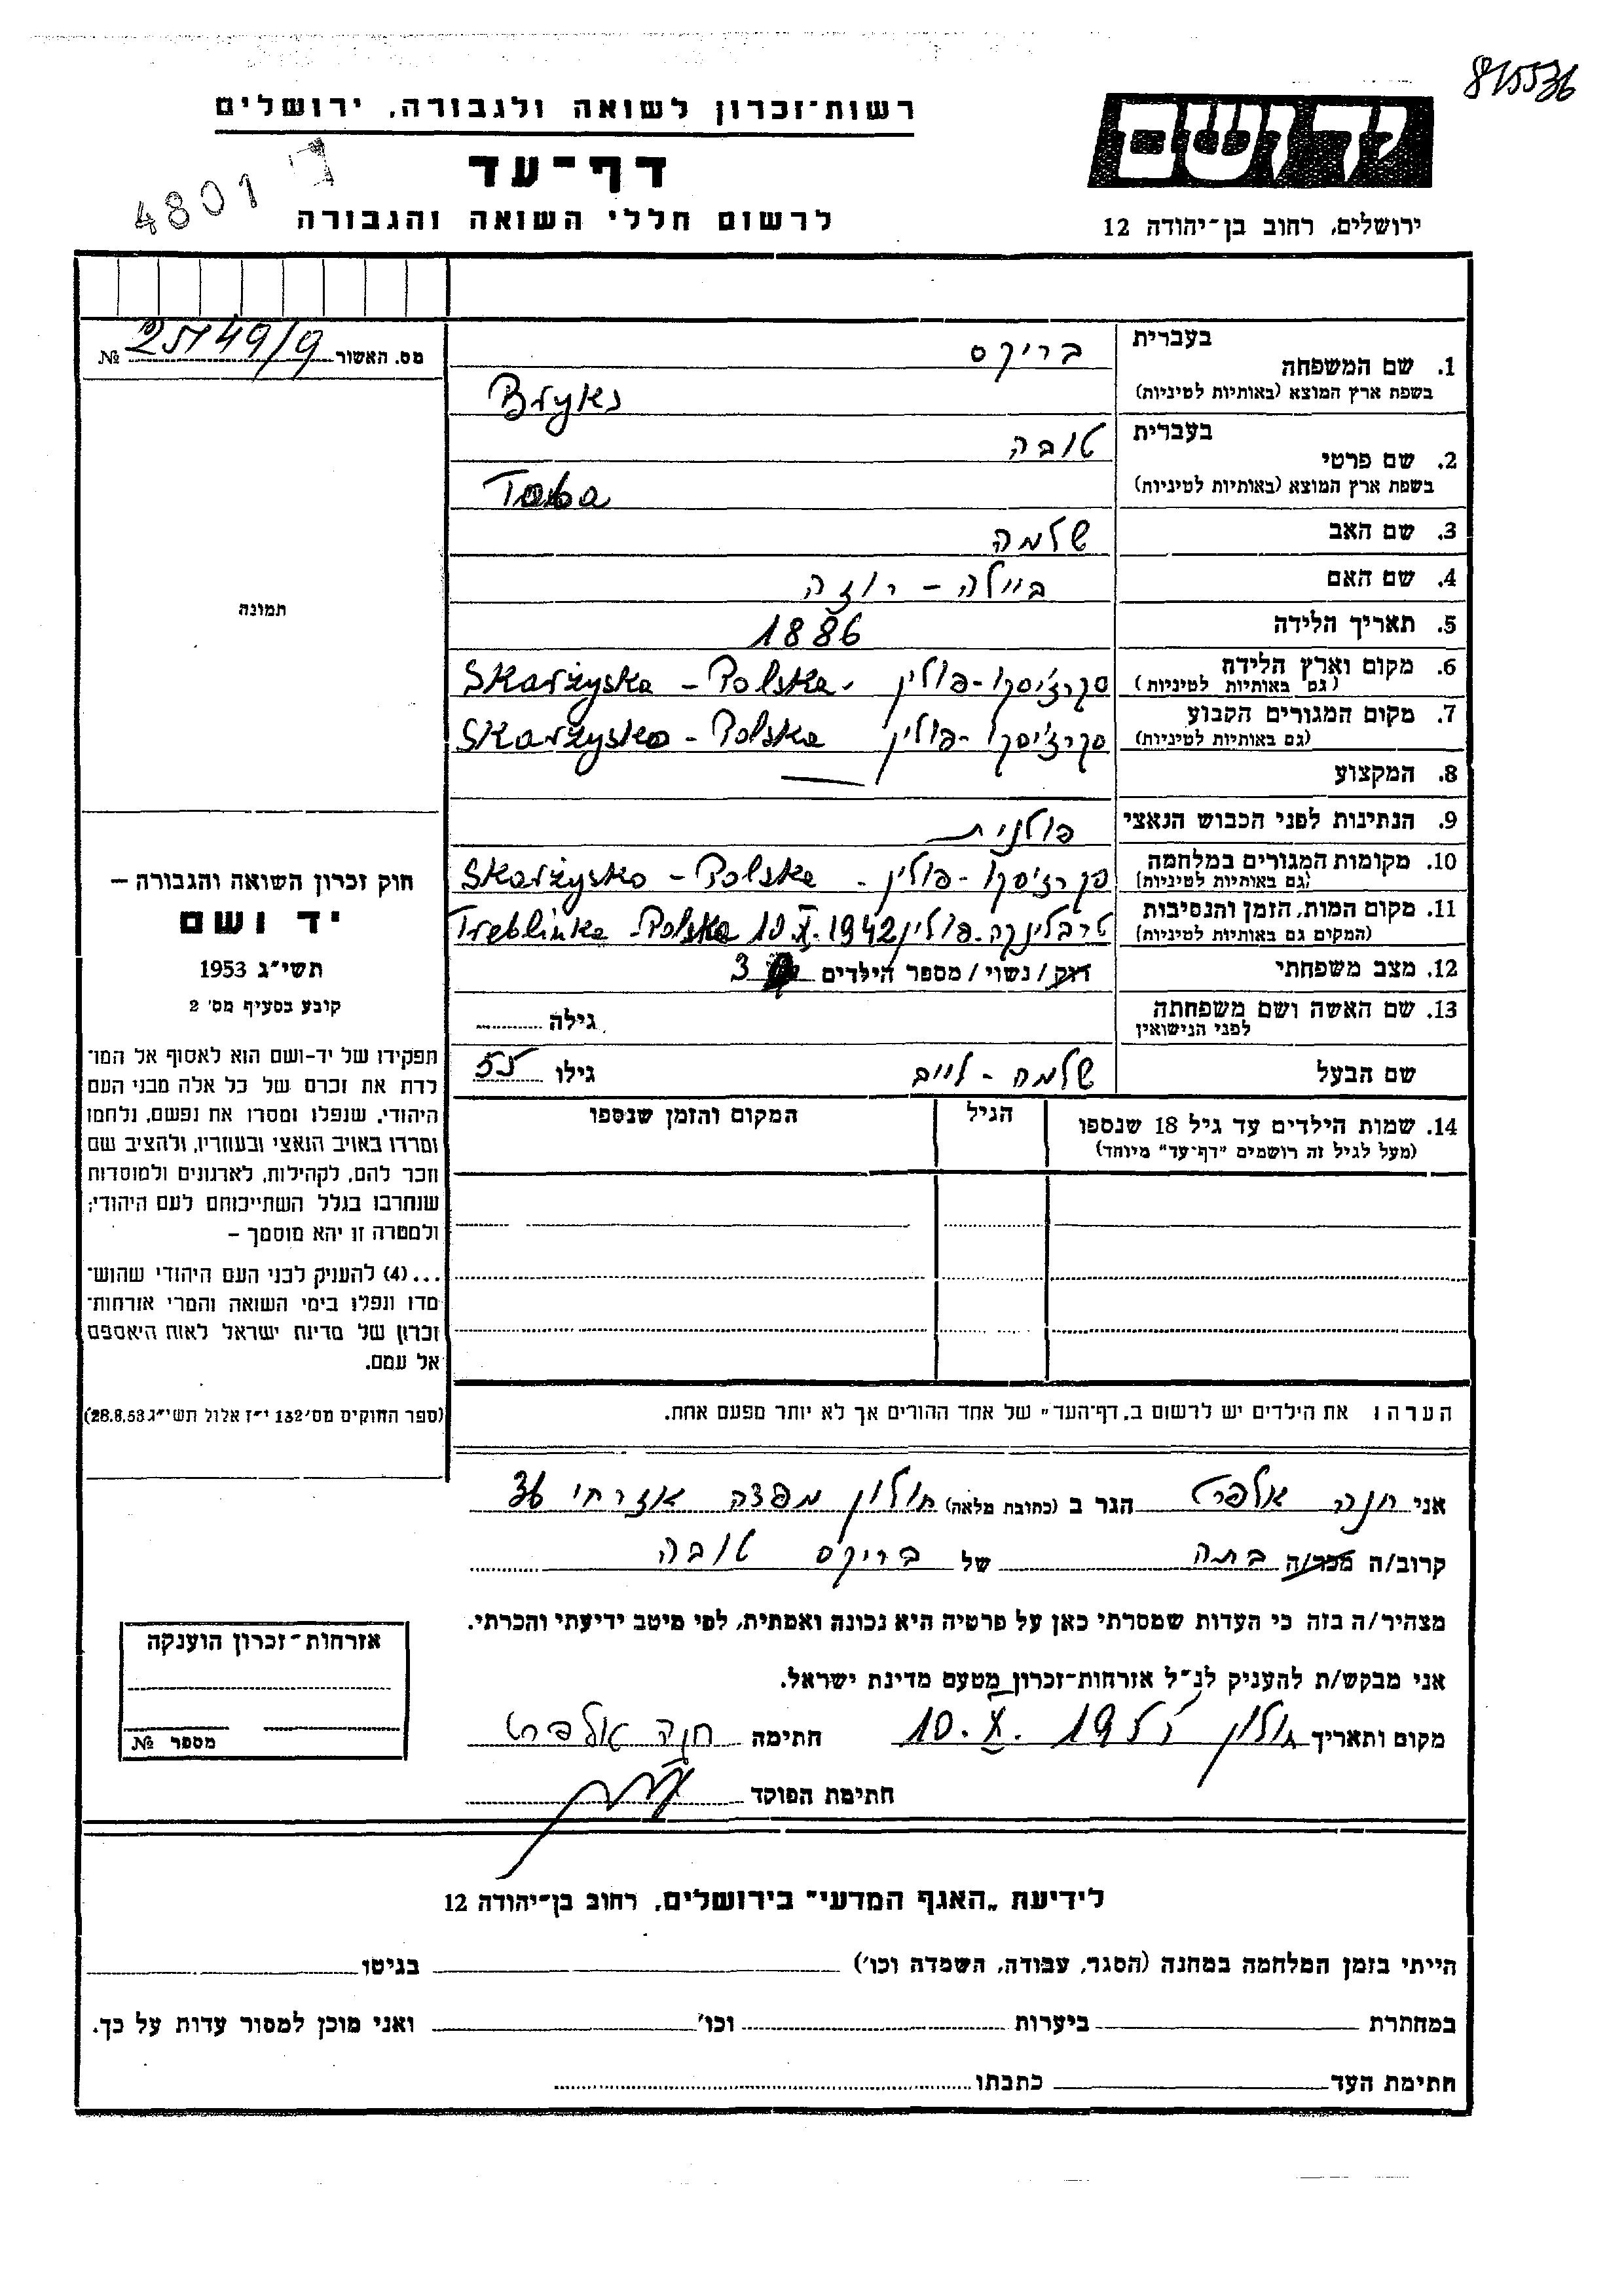 815536
רשות־זכרון לשואה ולגבורה, ירושלים
יד ושם
דף־עד
4801
לרשום חללי השואה והגבורה
ירושלים, רחוב בן־יהודה 12
מס. האשור 25749/9 №
בעברית בריקס
1. שם המשפחה
בשפת ארץ המוצא (באותיות לטיניות) Bryks
בעברית טובה
2. שם פרטי
בשפת ארץ המוצא (באותיות לטיניות) Toba
3. שם האב שלמה
4. שם האם ביילה - רוזה
5. תאריך הלידה 1886
6. מקום וארץ הלידה סקרז'יסקו - פולין - Skarżyska - Polska
(גם באותיות לטיניות)
7. מקום המגורים הקבוע סקרז'יסקו - פולין Skarżysko - Polska
(גם באותיות לטיניות)
8. המקצוע —
9. הנתינות לפני הכבוש הנאצי פולנית
10. מקומות המגורים במלחמה סקרז'יסקו - פולין - Skarżysko - Polska
(גם באותיות לטיניות)
11. מקום המות, הזמן והנסיבות טרבלינקה - פולין Treblinka - Polska 10.X.1942
(המקום גם באותיות לטיניות)
12. מצב משפחתי רוק / נשוי / מספר הילדים 3
13. שם האשה ושם משפחתה גילה
לפני הנישואין
שם הבעל שלמה - לייב גילו 55
14. שמות הילדים עד גיל 18 שנספו הגיל המקום והזמן שנספו
(מעל לגיל זה רושמים "דף־עד" מיוחד)
הערה: את הילדים יש לרשום ב„דף־העד" של אחד ההורים אך לא יותר מפעם אחת.
תמונה
חוק זכרון השואה והגבורה –
יד ושם
תשי"ג 1953
קובע בסעיף מס' 2
תפקידו של יד-ושם הוא לאסוף אל המו־
לדת את זכרם של כל אלה מבני העם
היהודי, שנפלו ומסרו את נפשם, נלחמו
ומרדו באויב הנאצי ובעוזריו, ולהציב שם
וזכר להם, לקהילות, לארגונים ולמוסדות
שנחרבו בגלל השתייכותם לעם היהודי;
ולמטרה זו יהא מוסמך –
... (4) להעניק לבני העם היהודי שהוש־
מדו ונפלו בימי השואה והמרי אזרחות־
זכרון של מדינת ישראל לאות היאספם
אל עמם.
(ספר החוקים מס' 132 י"ז אלול תשי"ג 28.8.53)
אני חנה אלפרט הגר ב (כתובת מלאה) חולון מפצה אזרחי 36
קרוב/ה מכר/ה בתה של בריקס טובה
מצהיר/ה בזה כי העדות שמסרתי כאן על פרטיה היא נכונה ואמתית, לפי מיטב ידיעתי והכרתי.
אני מבקש/ת להעניק לנ"ל אזרחות־זכרון מטעם מדינת ישראל.
מקום ותאריך חולון 10.X.1955 חתימה חנה אלפרט
חתימת הפוקד
אזרחות־זכרון הוענקה
מספר №
לידיעת „האגף המדעי" בירושלים, רחוב בן־יהודה 12
הייתי בזמן המלחמה במחנה (הסגר, עבודה, השמדה וכו') בגיטו
במחתרת ביערות וכו' ואני מוכן למסור עדות על כך.
חתימת העד כתבתו